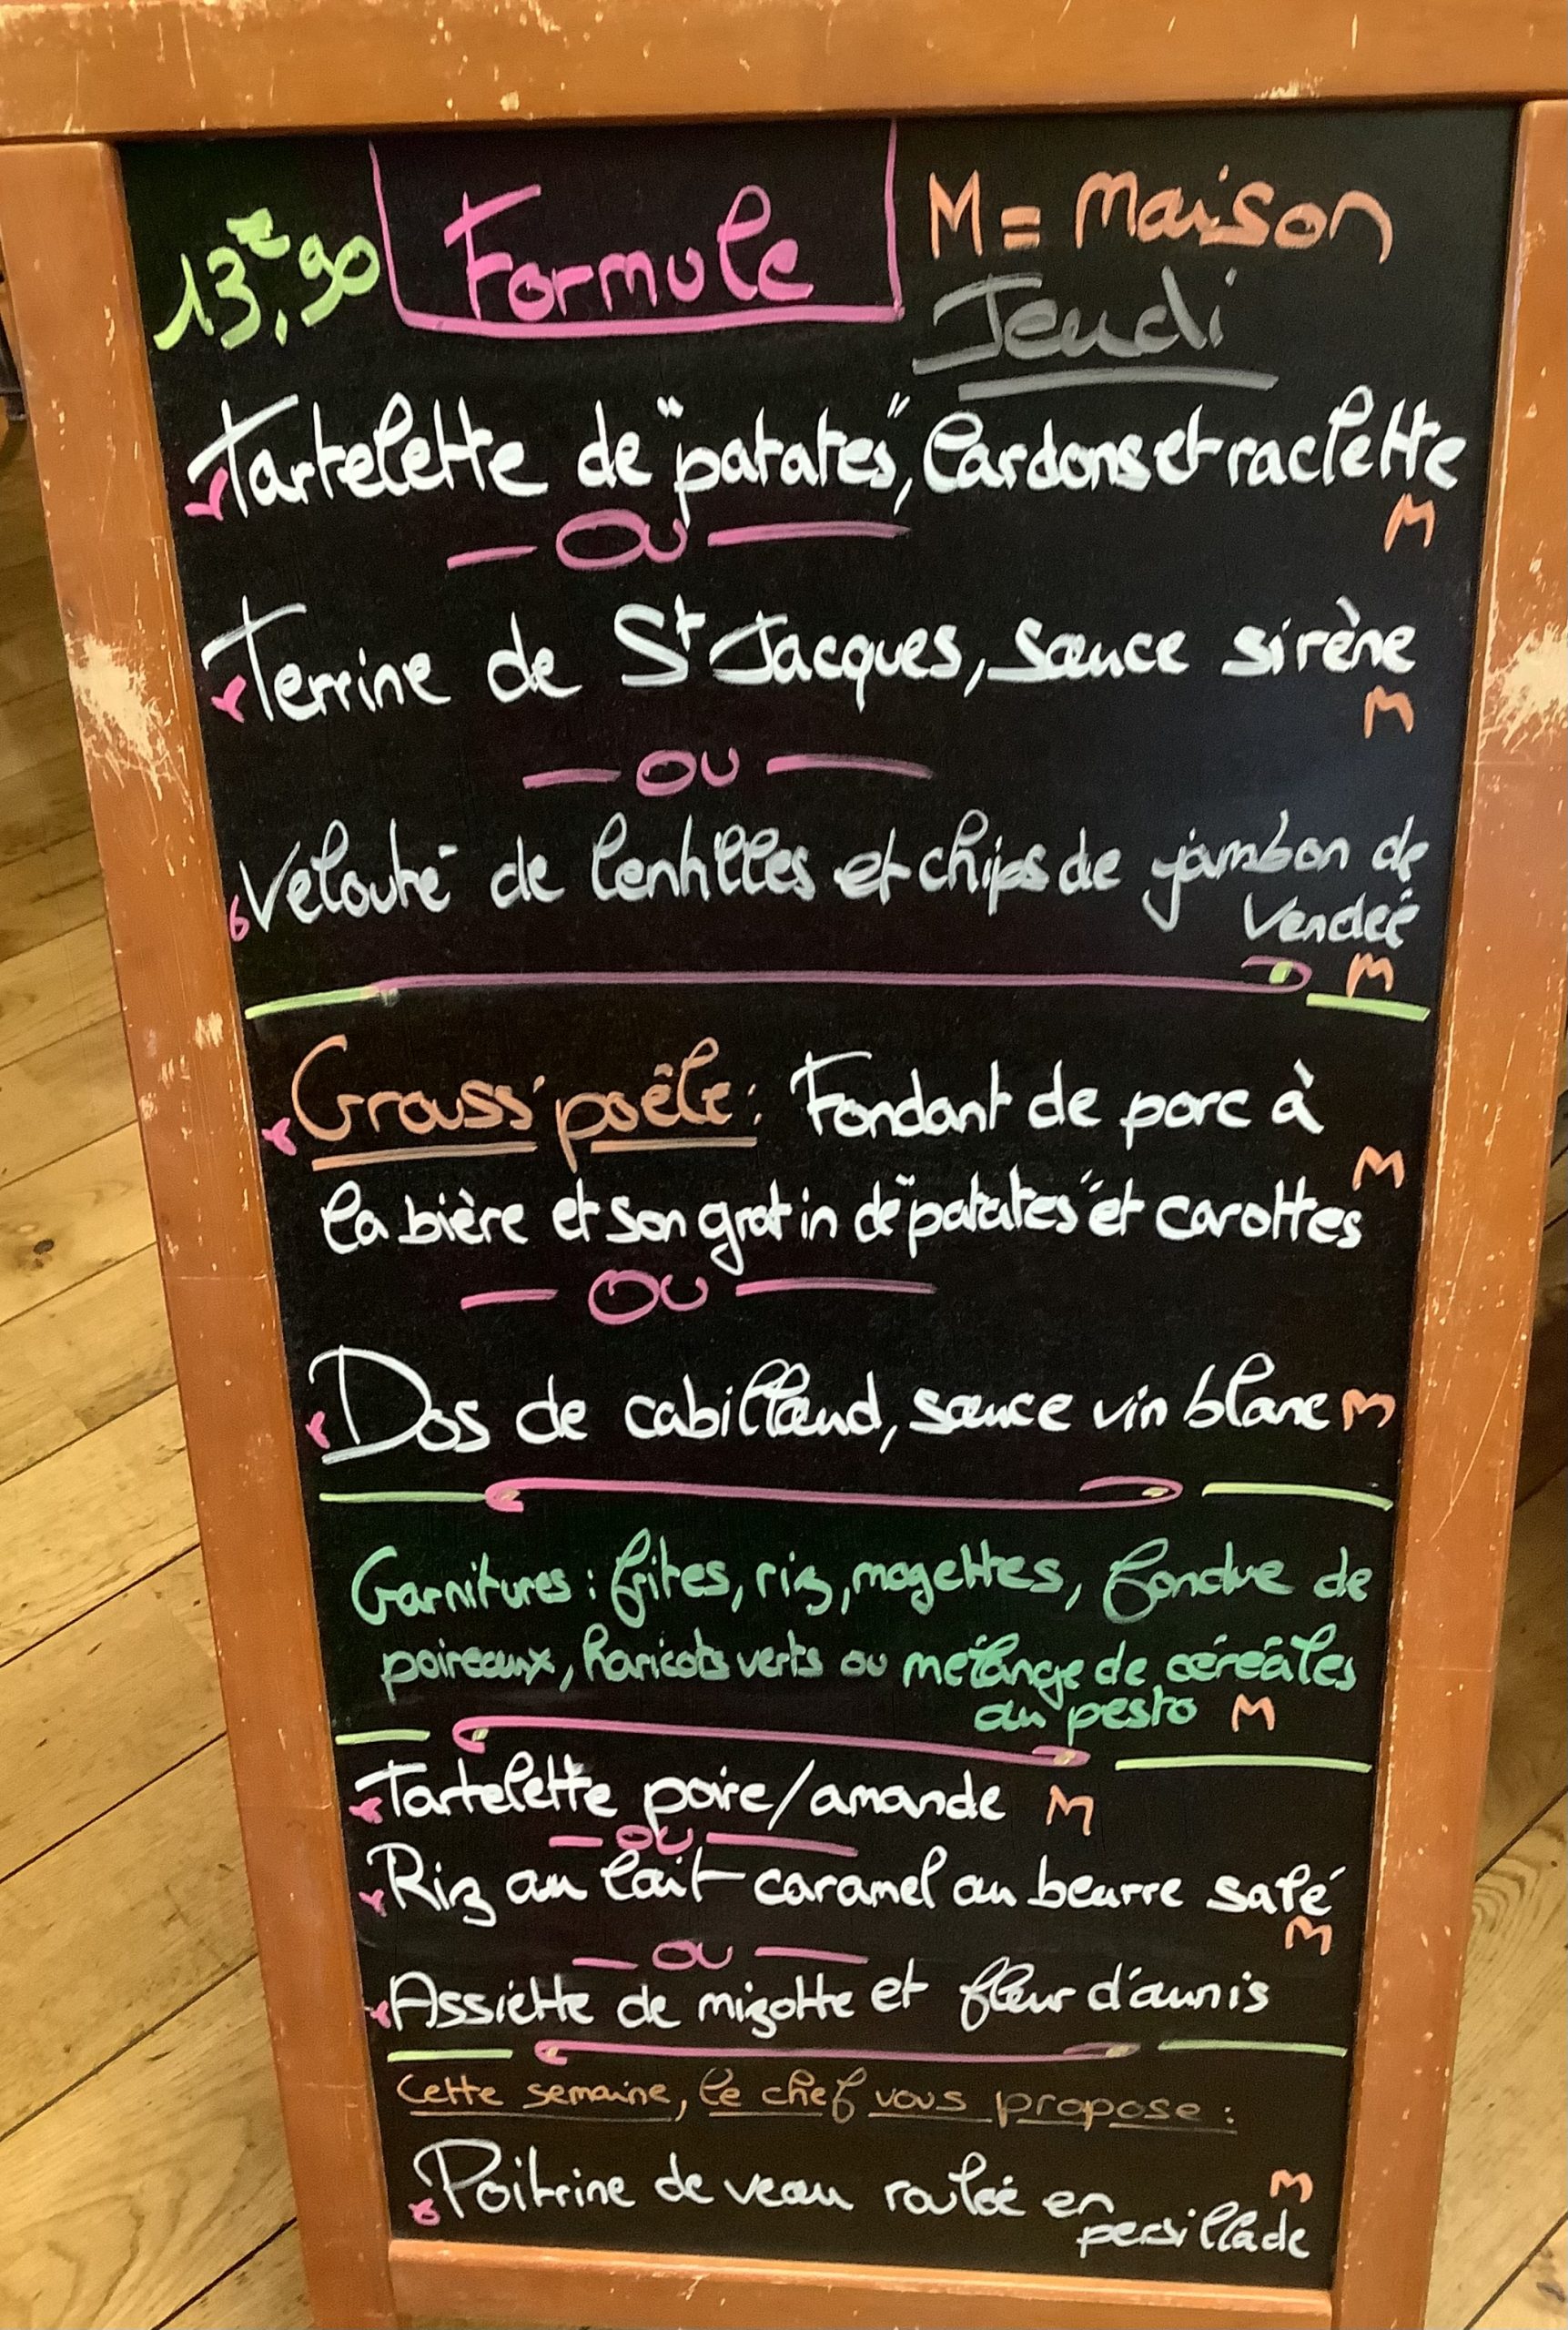 13€,90 Formule M = Maison
Jeudi
Tartelette de "patates", lardons et raclette
M
— OU —
Terrine de St Jacques, sauce sirène
M
— OU —
Velouté de lentilles et chips de jambon de
Vendée
M
Grouss'poêle : Fondant de porc à
M
la bière et son gratin de "patates" et carottes
— OU —
Dos de cabillaud, sauce vin blanc M
Garnitures : frites, riz, mogettes, fondue de
poireaux, haricots verts ou mélange de céréales
au pesto M
Tartelette poire/amande M
— OU —
Riz au lait caramel au beurre salé
M
— OU —
Assiette de mizotte et fleur d'aunis
Cette semaine, le chef vous propose :
Poitrine de veau roulée en M
persillade